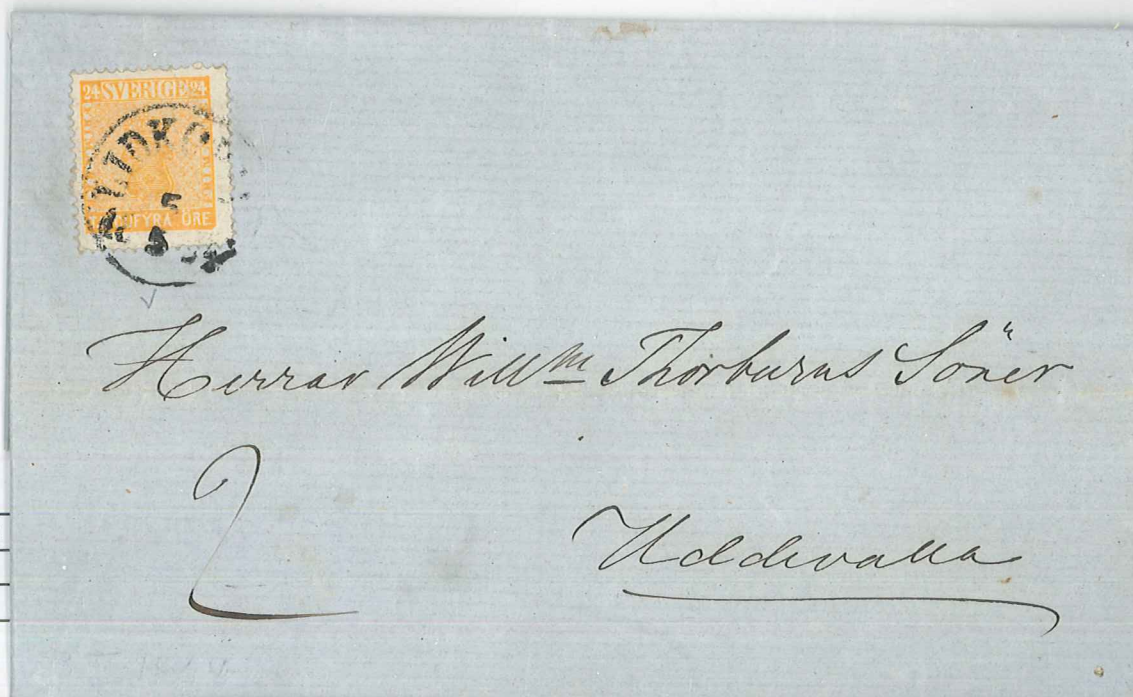 24 SVERIGE 24
ÖRE
5
Herrar Willm Thorburns Söner
2
Uddevalla